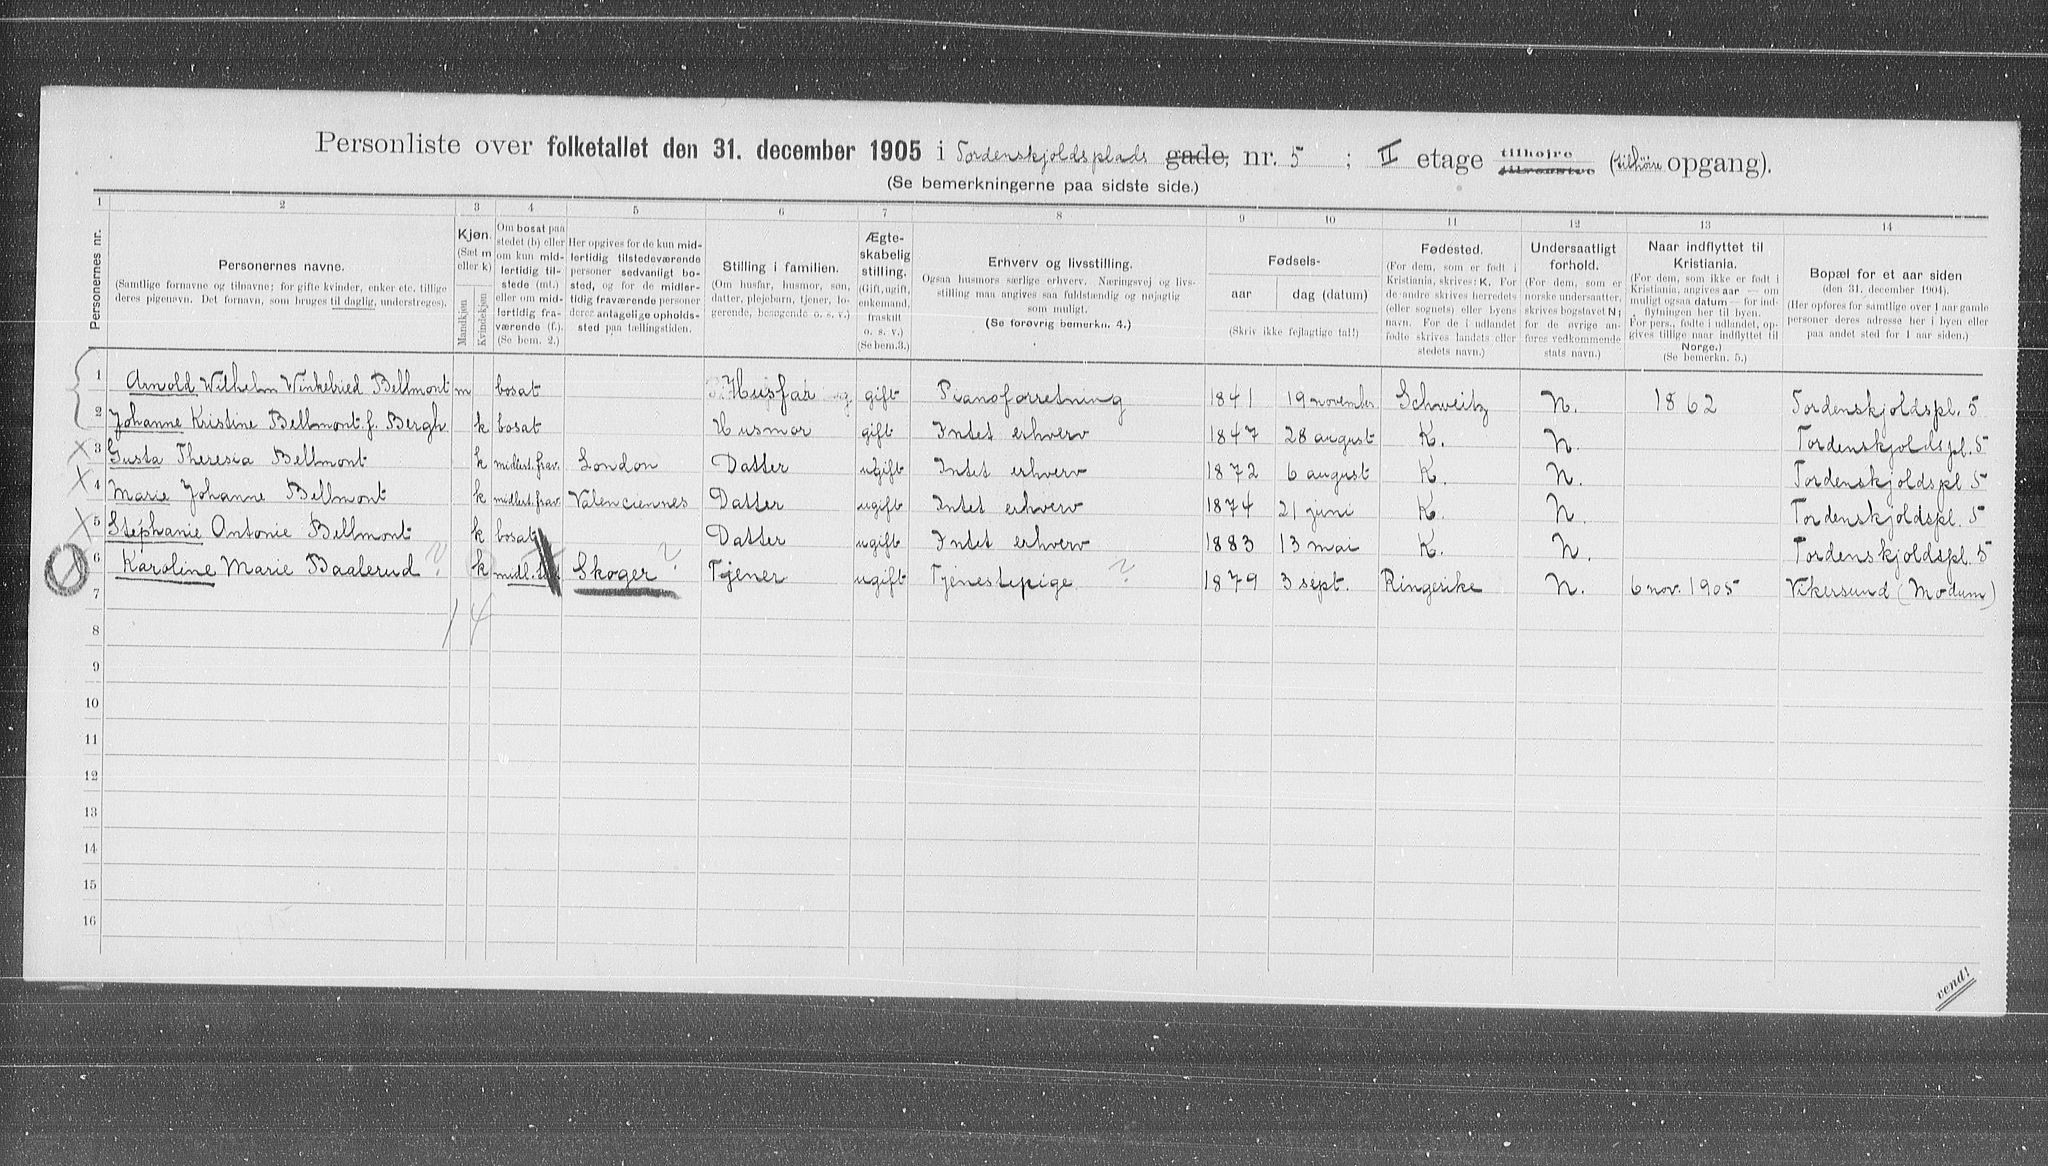 Personliste over folketallet den 31. december 1905 i Tordenskjoldsplads gade, nr. 5 ; II etage tilhøjre tilvenstre (tilhøire opgang).
(Se bemerkningerne paa sidste side.)
1 2 3 4 5 6 7 8 9 10 11 12 13 14
Personernes nr.
Personernes navne.
(Samtlige fornavne og tilnavne; for gifte kvinder, enker etc. tillige
deres pigenavn. Det fornavn, som bruges til daglig, understreges).
Kjøn.
(Sæt m
eller k)
Mandkjøn
Kvindekjøn
Om bosat paa
stedet (b) eller
om kun mid-
lertidig til-
stede (mt.)
eller om mid-
lertidig fra-
værende (f.).
(Se bem. 2.)
Her opgives for de kun mid-
lertidig tilstedeværende
personer sedvanligt bo-
sted, og for de midler-
tidig fraværende personer
deres antagelige opholds-
sted paa tællingstiden.
Stilling i familien.
(Om husfar, husmor, søn,
datter, plejebarn, tjener, lo-
gerende, besøgende o. s. v.)
Ægte-
skabelig
stilling.
(Gift, ugift,
enkemand,
fraskilt
o. s. v.)
(Se bem. 3.)
Erhverv og livsstilling.
Ogsaa husmors særlige erhverv. Næringsvej og livs-
stilling maa angives saa fuldstændig og nøjagtig
som muligt.
(Se forøvrig bemerkn. 4.)
Fødsels-
aar
dag (datum)
(Skriv ikke fejlagtige tal!)
Fødested.
(For dem, som er født i
Kristiania, skrives: K. For
de andre skrives herredets
(eller sognets) eller byens
navn. For de i udlandet
fødte skrives landets eller
stedets navn.)
Undersaatligt
forhold.
(For dem, som er
norske undersaatter,
skrives bogstavet N;
for de øvrige an-
føres vedkommende
stats navn.)
Naar indflyttet til
Kristiania.
(For dem, som ikke er født i
Kristiania, angives aar — om
muligt ogsaa datum — for ind-
flytningen her til byen.
For pers., fødte i udlandet, op-
gives tillige naar indflyttet til
Norge.)
(Se bemerkn. 5.)
Bopæl for et aar siden
(den 31. december 1904).
(Her opføres for samtlige over 1 aar gamle
personer deres adresse her i byen eller
paa andet sted for 1 aar siden.)
1 Arnold Wilhelm Winkelried Bellmont m bosat Husfar gift Pianoforretning 1841 19 november Schweitz N. 1862 Tordenskjoldspl. 5
2 Johanne Kristine Bellmont f. Bergh k bosat Husmor gift Intet erhverv 1847 28 august K. N. Tordenskjoldspl. 5
3 Gusta Theresia Bellmont k midlert. frav. London Datter ugift Intet erhverv 1872 6 august K. N. Tordenskjoldspl 5
4 Marie Johanne Bellmont k midlert. frav. Valenciennes Datter ugift Intet erhverv 1874 21 juni K. N. Tordenskjoldspl. 5
5 Stephanie Antonie Bellmont k bosat Datter ugift Intet erhverv 1883 13 mai K. N. Tordenskjoldspl. 5
6 Karoline Marie Baalerud ? k midl. Skoger ? Tjener ugift Tjenestepige ? 1879 3 sept. Ringerike N. 6 nov. 1905 Vikersund (Modum)
7
1 4
8
9
10
11
12
13
14
15
16
vend!